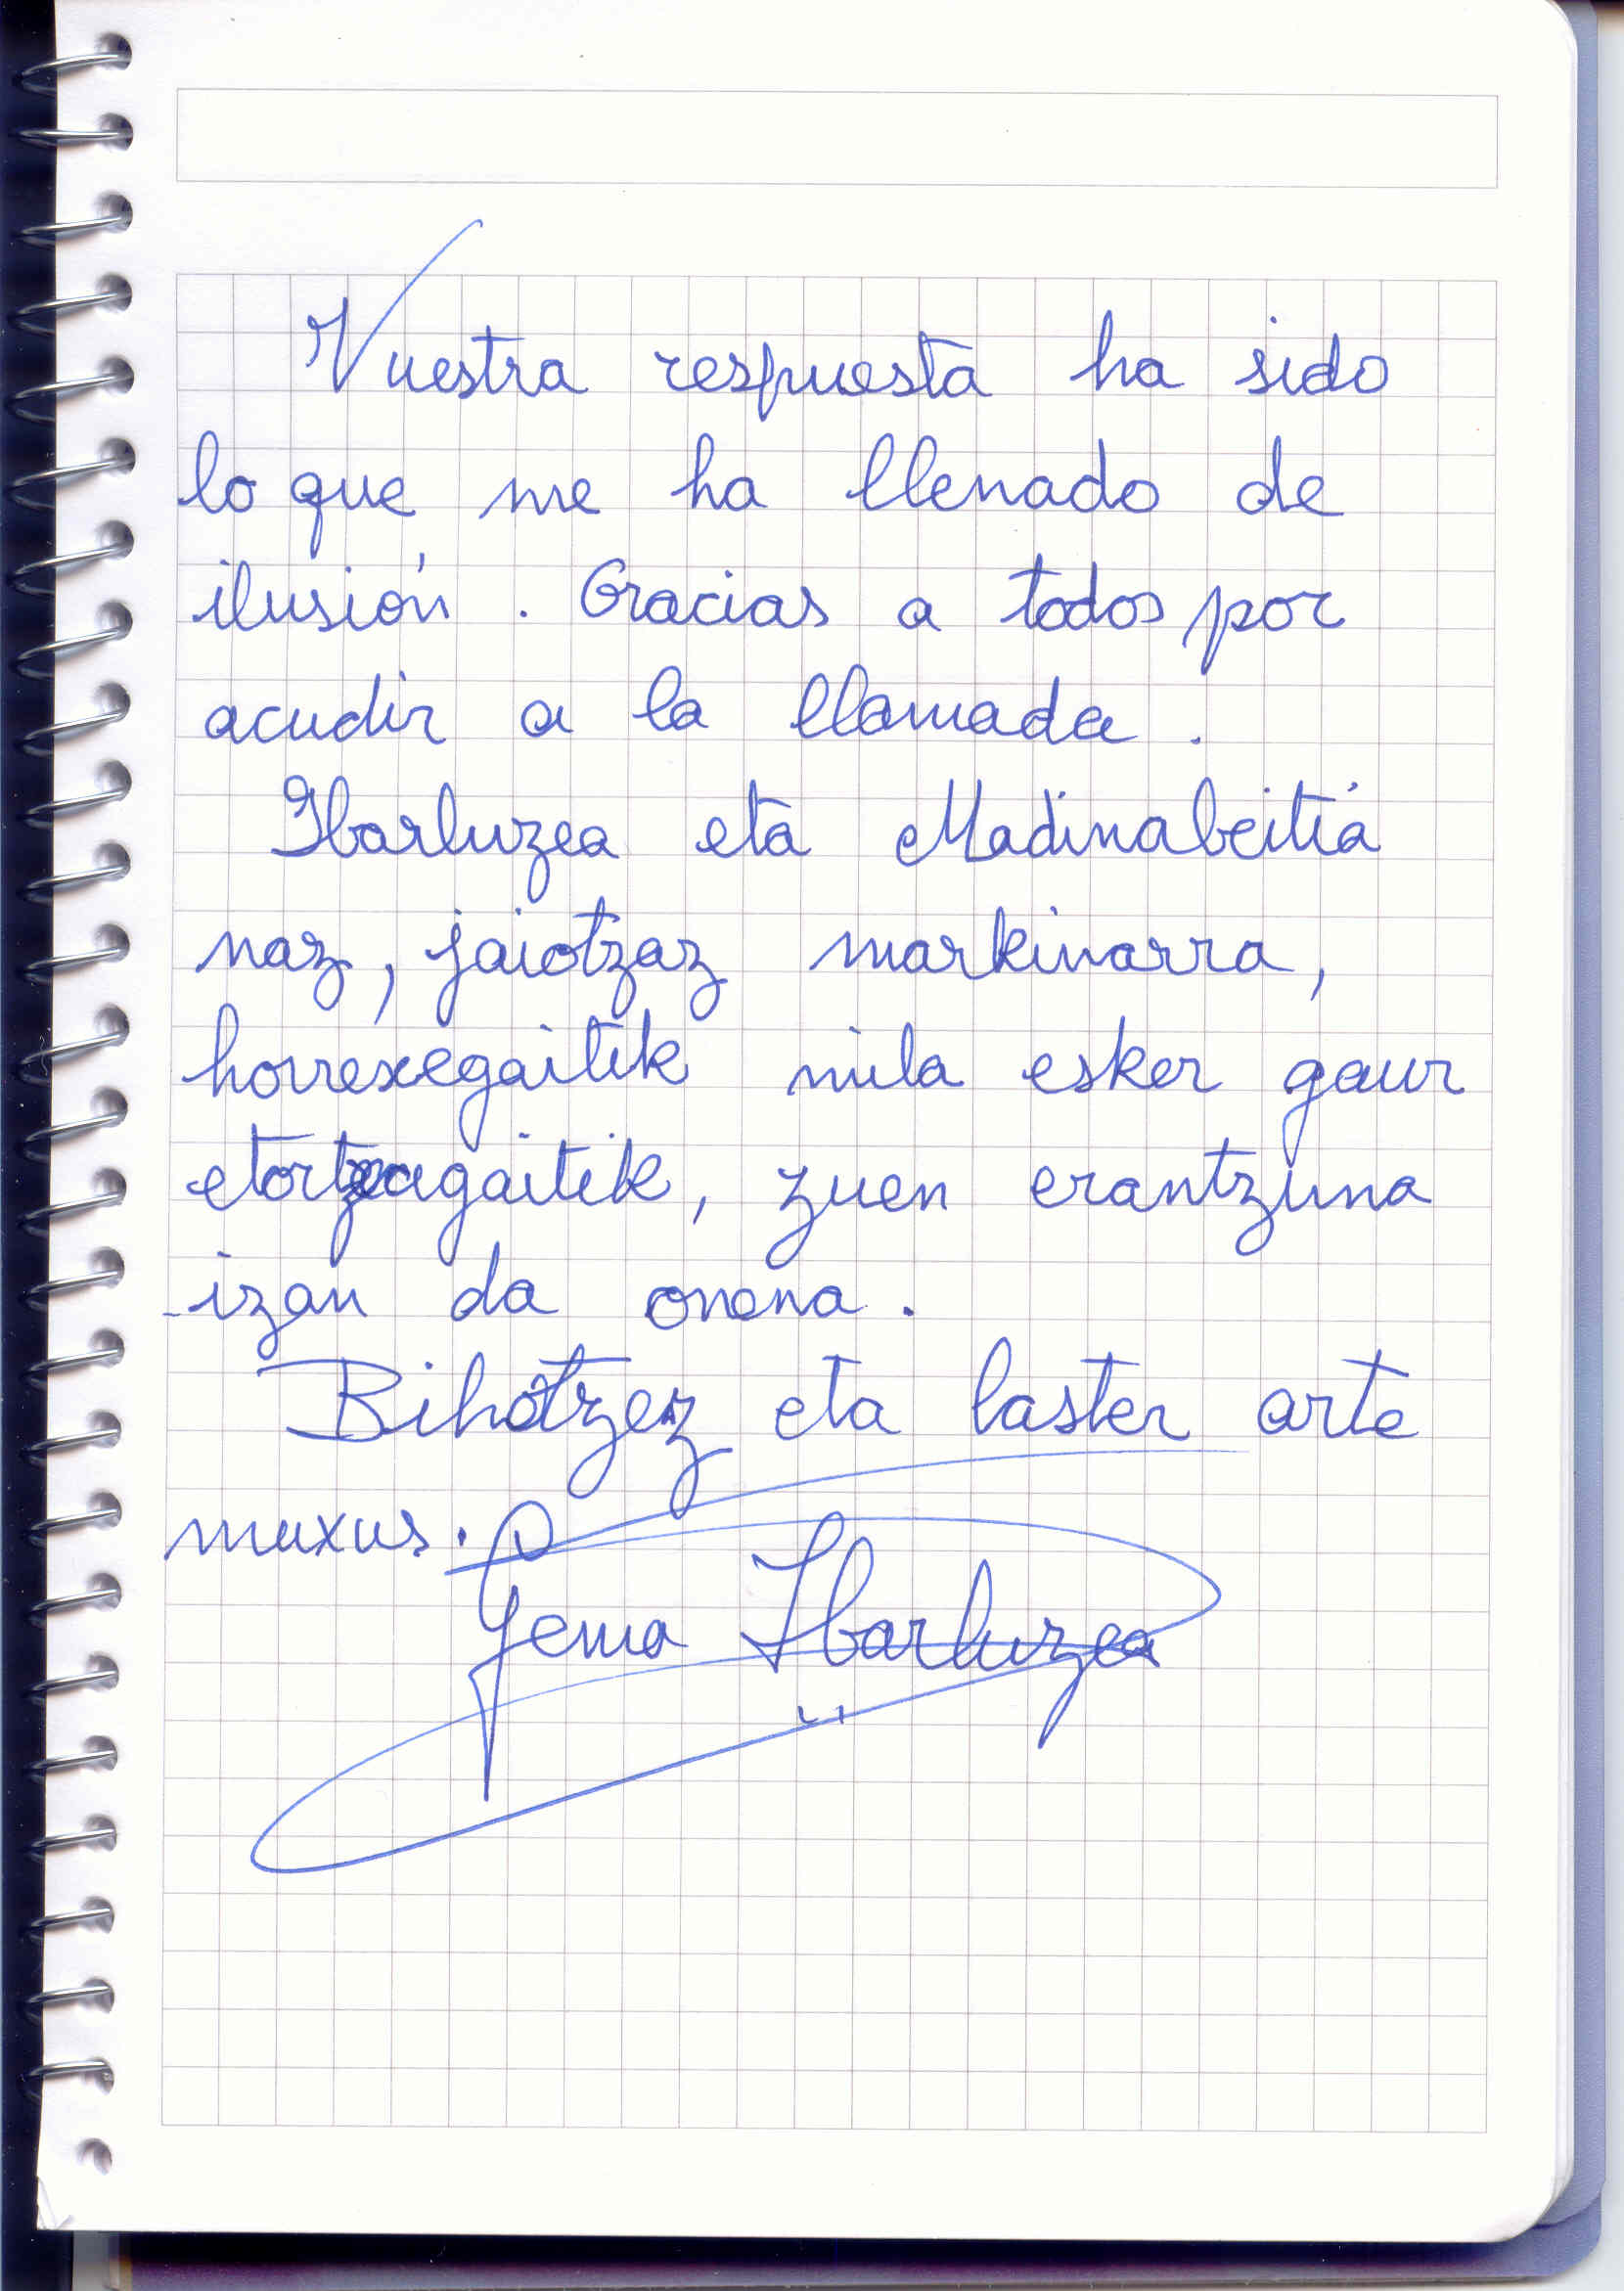 Vuestra respuesta ha sido
lo que me ha llenado de
ilusión. Gracias a todos por
acudir a la llamada.
Ibarluzea eta Madinabeitia
naz, jaiotzaz markinarra,
horrexegaitik mila esker gaur
etortzeagaitik, zuen erantzuna
izan da onena.
Bihotzez eta laster arte
muxus.
Gema Ibarluzea